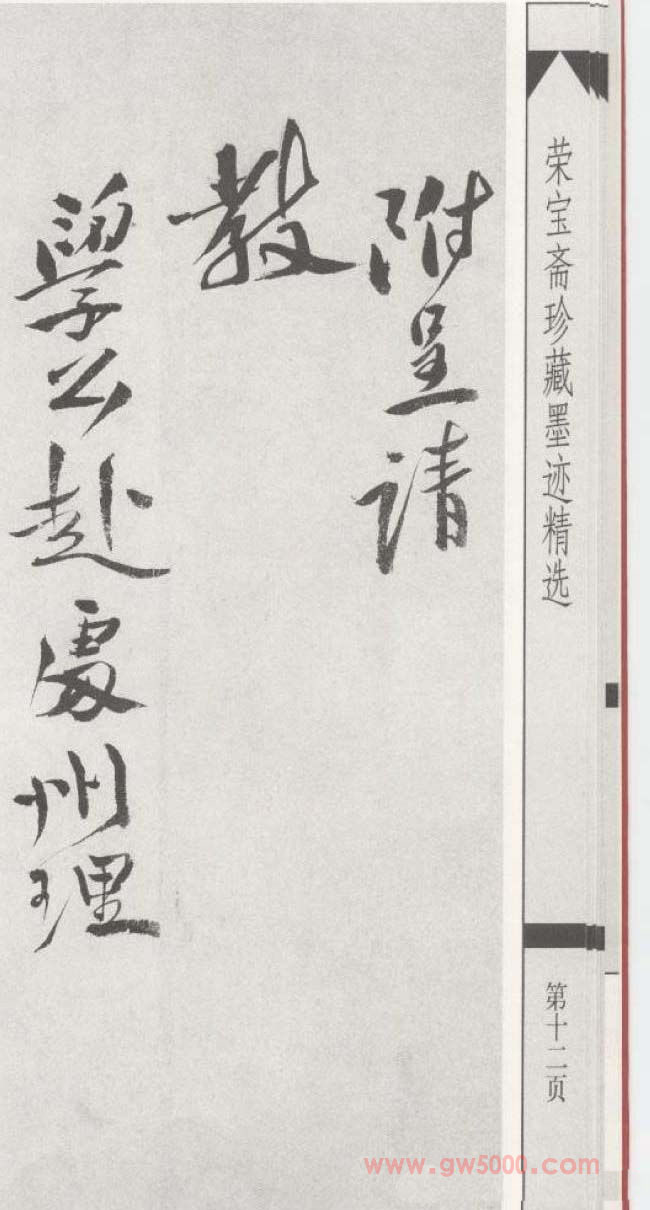 荣宝斋珍藏墨迹精选
第十二页
附呈請
教
學公赴處州理
www.gw5000.com